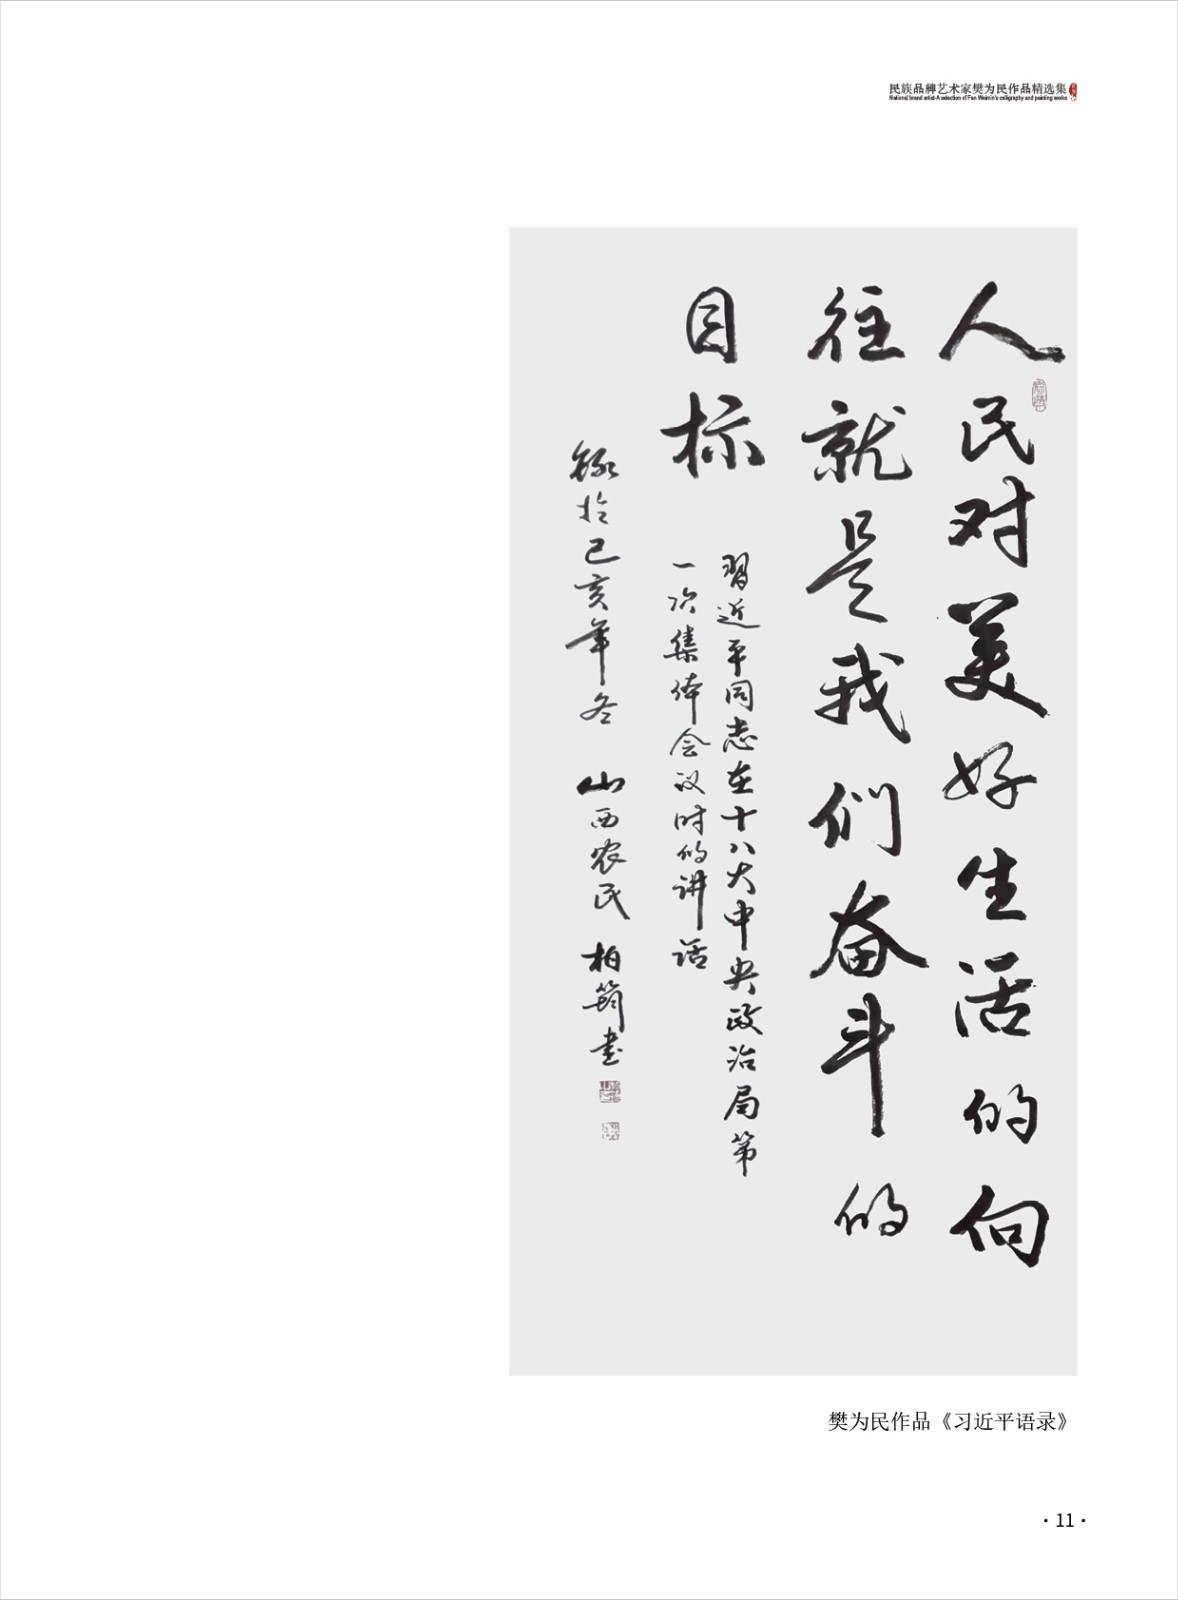 民族品牌艺术家樊为民作品精选集
National brand artist-A selection of Fan Weimin's calligraphy and painting works
人民对美好生活的向
往就是我们奋斗的
目标
習近平同志在十八大中央政治局第
一次集体会议时的讲话
録於己亥年冬 山西农民 柏筠书
樊为民作品《习近平语录》
·11·